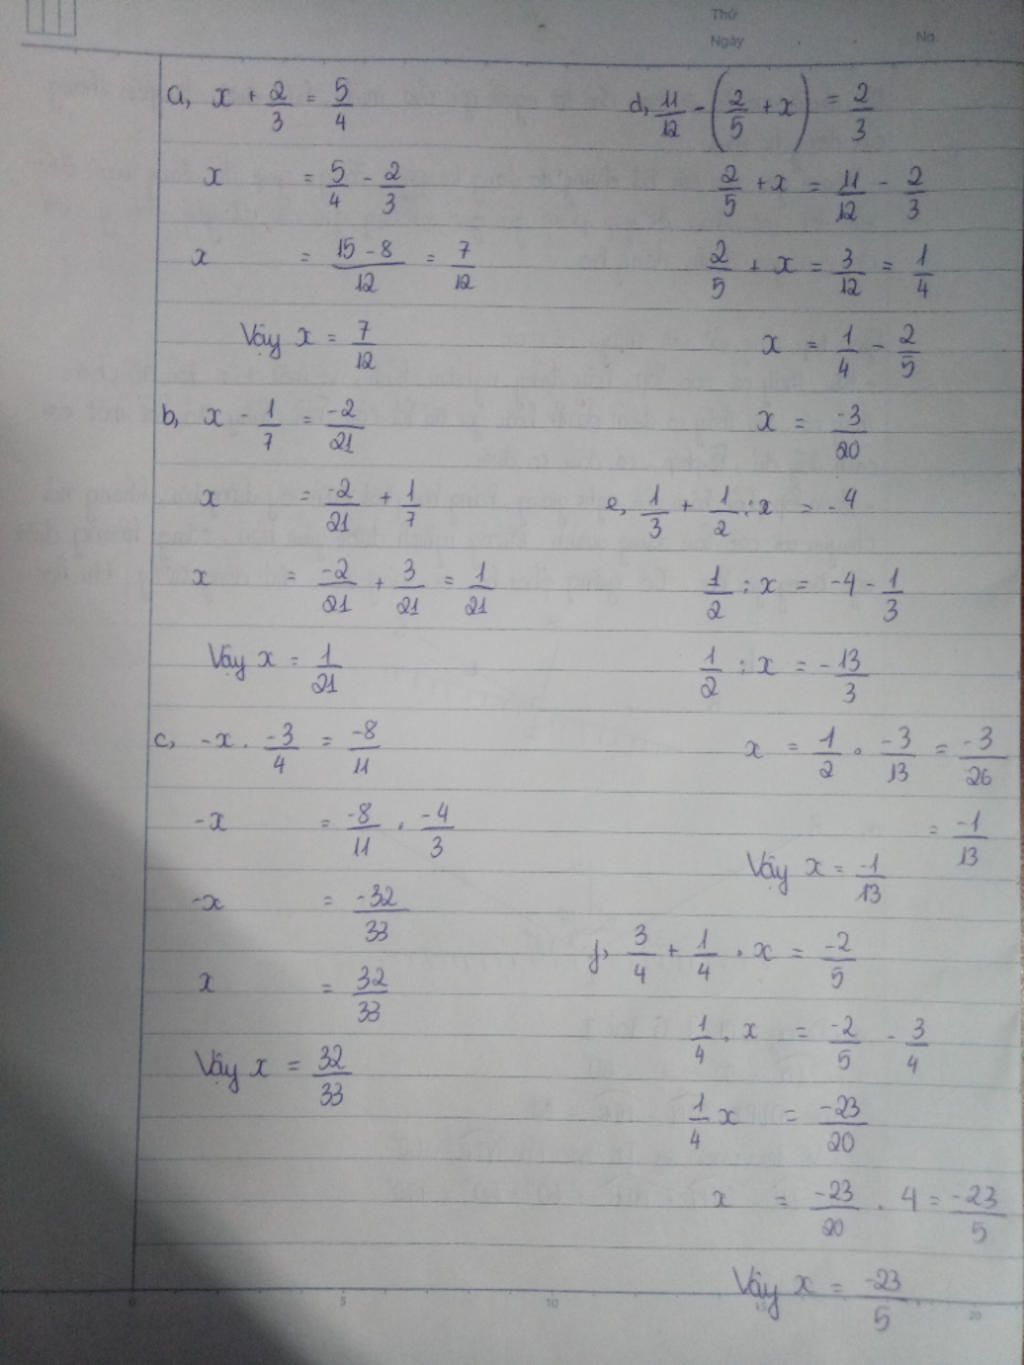 Thứ
Ngày . . No.
a, x + 2/3 = 5/4
x = 5/4 - 2/3
x = (15 - 8)/12 = 7/12
Vậy x = 7/12
b, x - 1/7 = -2/21
x = -2/21 + 1/7
x = -2/21 + 3/21 = 1/21
Vậy x = 1/21
c, -x . -3/4 = -8/11
-x = -8/11 . -4/3
-x = -32/33
x = 32/33
Vậy x = 32/33
d, 11/12 - (2/5 + x) = 2/3
2/5 + x = 11/12 - 2/3
2/5 + x = 3/12 = 1/4
x = 1/4 - 2/5
x = -3/20
e, 1/3 + 1/2 : x = -4
1/2 : x = -4 - 1/3
1/2 : x = -13/3
x = 1/2 . -3/13 = -3/26
= -1/13
Vậy x = -1/13
f, 3/4 + 1/4 . x = -2/5
1/4 . x = -2/5 - 3/4
1/4 x = -23/20
x = -23/20 . 4 = -23/5
Vậy x = -23/5
0 5 10 15 20